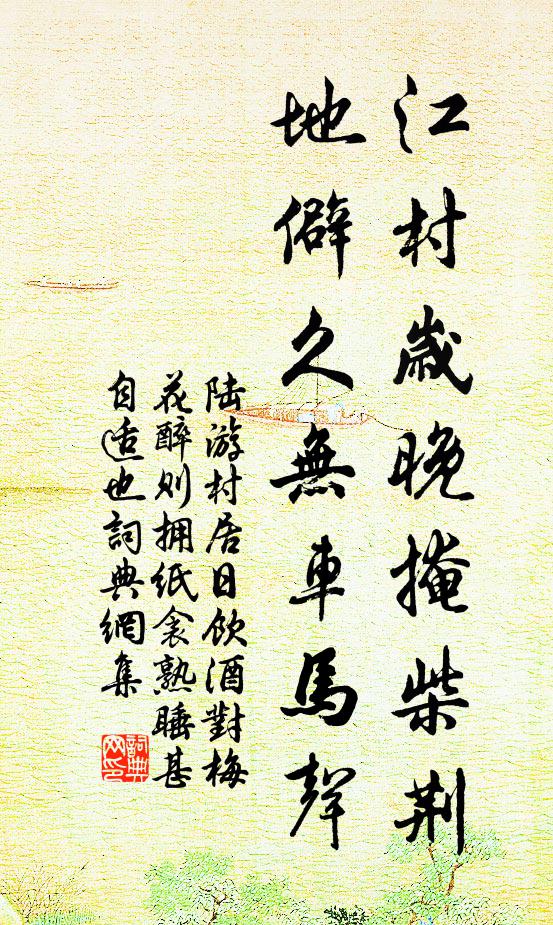 江村歲晚掩柴荆
地僻久無車馬聲
陆游村居日飲酒對梅
花醉则拥纸衾熟睡甚
自适也詞典網集
詞典网印